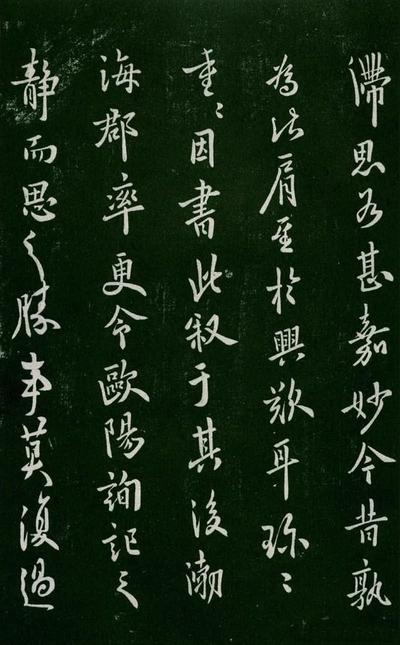 滯思甚嘉妙今昔孰
為比肩至於興歎耳珎〻
重〻因書此叙于其後渤
海郡率更令歐陽詢記之
靜而思之勝事莫復過